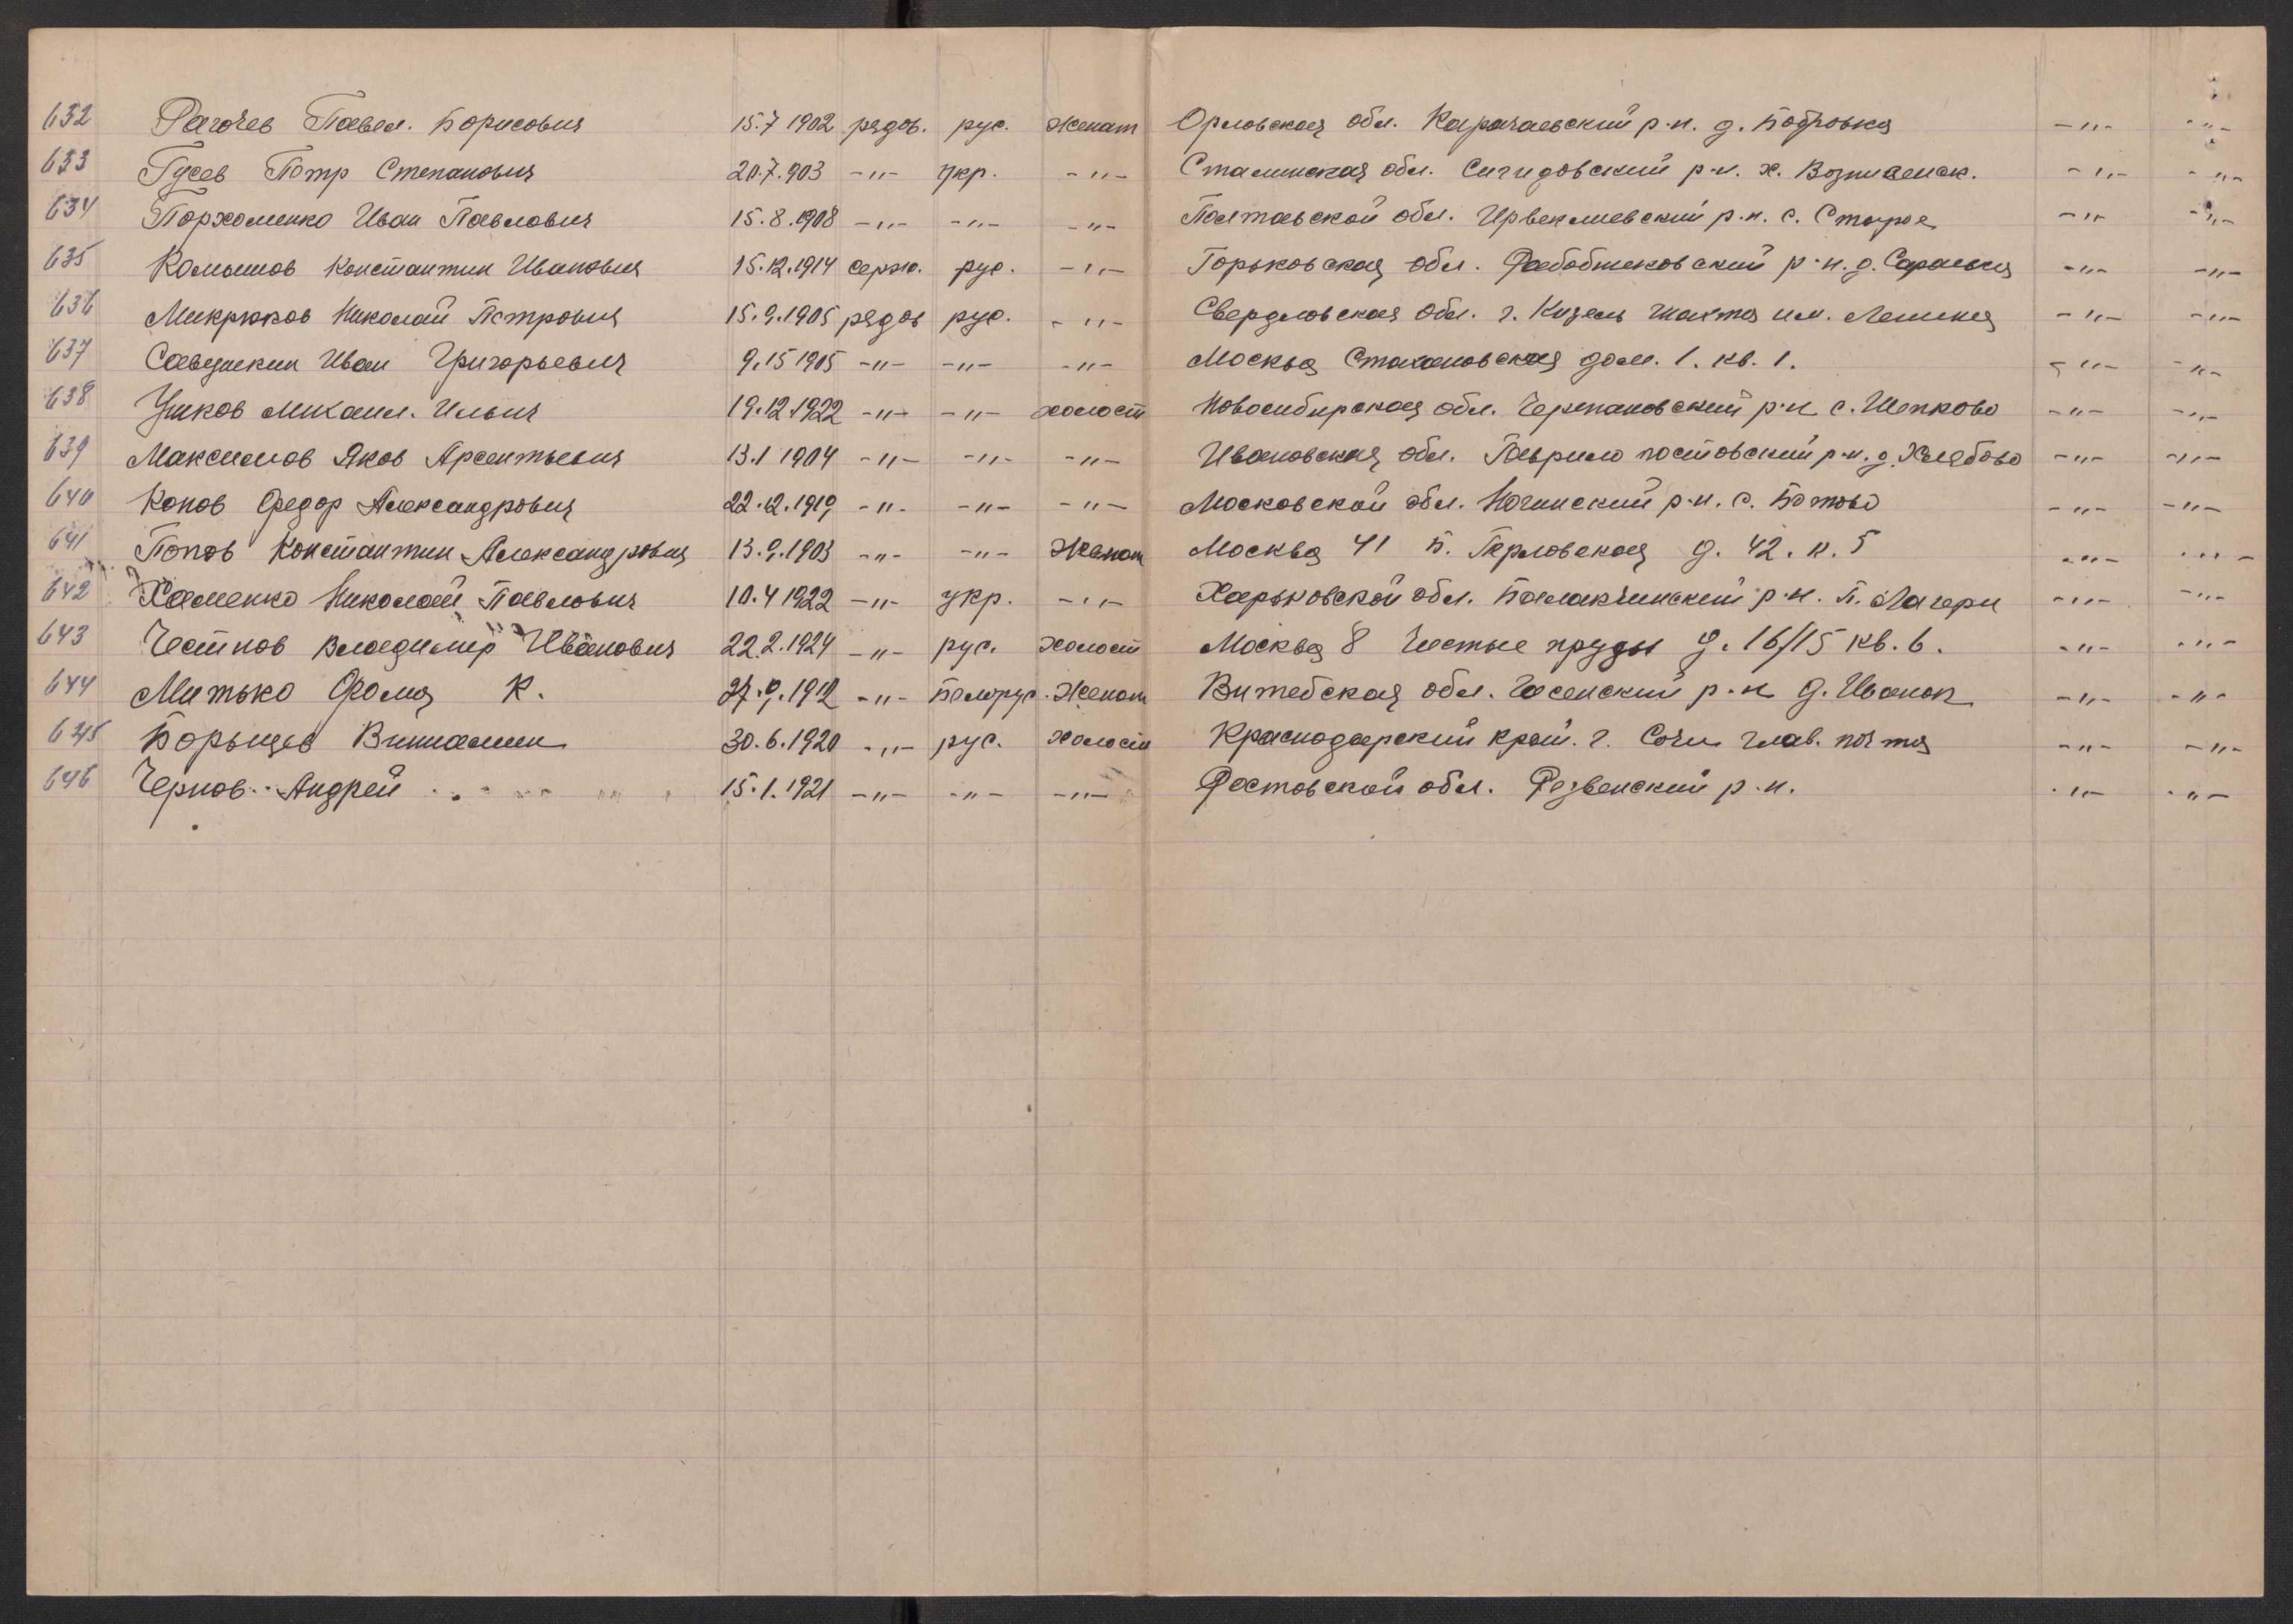 632 Рагочев Павел. Борисович 15.7 1902 рядов. рус. Женат Орловская обл. Карачаевский р-н. д. Бобровка -"- -"-
633 Гусев Петр Степанович 20.7.903 -"- укр. -"- Сталинская обл. р-н. х. -"- -"-
634 Порхоменко Иван Павлович 15.8.1908 -"- -"- -"- Полтавской обл. Ирвеклиевский р-н. с. Старое -"- -"-
635 Комышов Константин Иванович 15.12.1914 серж. рус. -"- Горьковская обл. р-н. д. -"- -"-
636 Микрюков Николай Петрович 15.9.1905 рядов рус. -"- Свердловская обл. г. Кизель шахта им. Ленина -"- -"-
637 Савушкин Иван Григорьевич 9.15 1905 -"- -"- -"- Москва Стахановская дом. 1. кв. 1. -"- -"-
638 Ушков Михаил. Ильич 19.12.1922 -"- -"- холост Новосибирская обл. Черепановский р-н с. Шепково -"- -"-
639 Максимов Яков Арсентьевич 13.1 1904 -"- -"- -"- Ивановская обл. Гаврило постовский р-н. д. Хлябово -"- -"-
640 Конов Федор Александрович 22.12.1919 -"- -"- -"- Московской обл. Ногинский р-н. с. Ботово -"- -"-
641 Попов Константин Александрович 13.9.1903 -"- -"- Женат Москва 41 Б. Перловская д. 42. к. 5 -"- -"-
642 Хаменко Николай Павлович 10.4 1922 -"- укр. -"- Харьковской обл. Балакчинский р-н. П. Лагери -"- -"-
643 Честнов Владимир Иванович 22.2.1924 -"- рус. холост Москва 8 Чистые пруды д. 16/15 кв. 6. -"- -"-
644 Митько Фома К. 27.9.1912 -"- Белорус. Женат Витебская обл. р-н д. -"- -"-
645 Борыцев Вишиамин 30.6.1920 -"- рус. холост Краснодарский край. г. Сочи глав. почта -"- -"-
646 Чернов Андрей 15.1.1921 -"- -"- -"- Ростовской обл. Резвенский р-н. -"- -"-